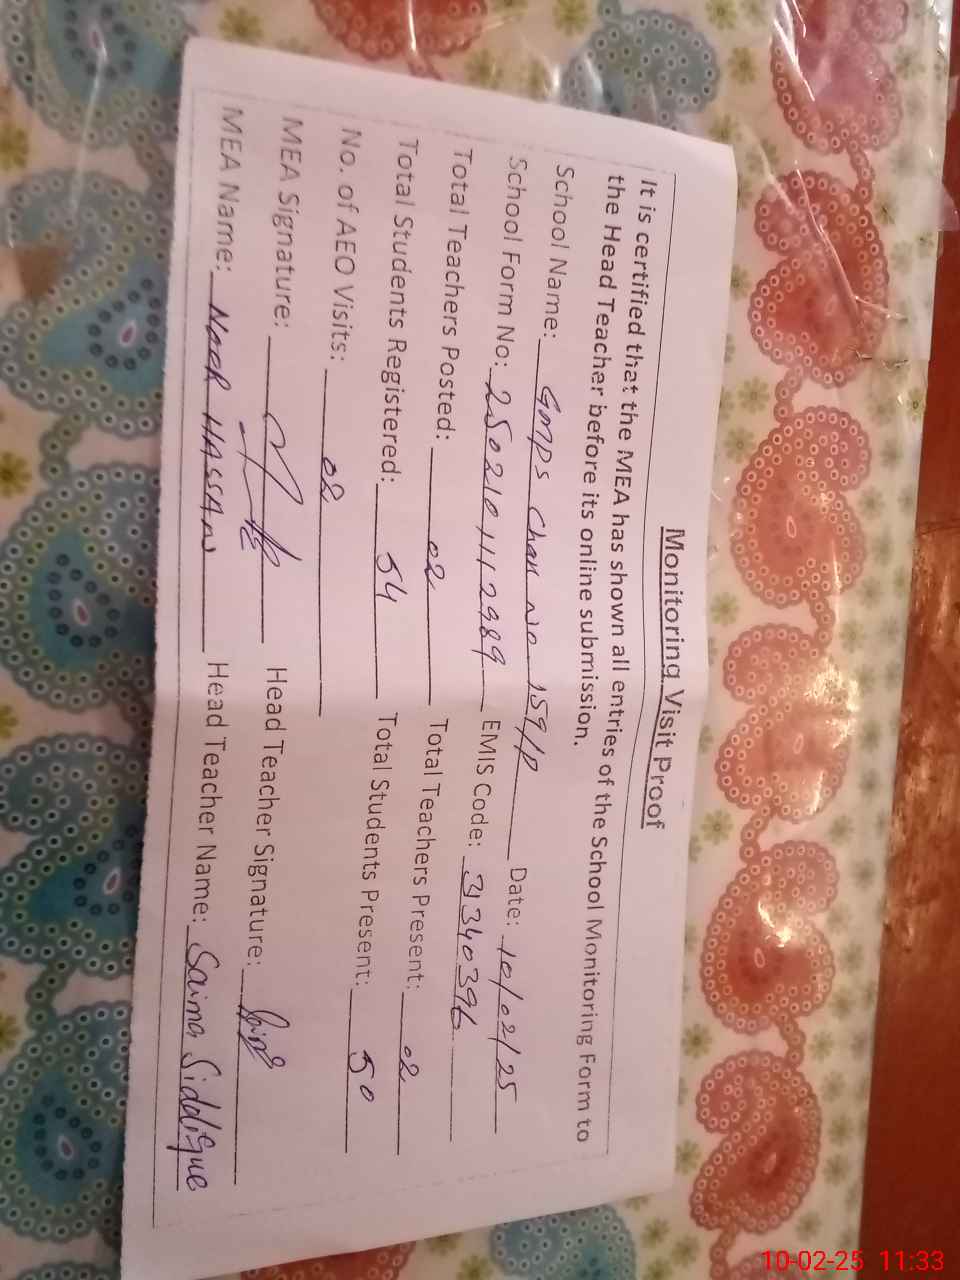 Monitoring Visit Proof
It is certified that the MEA has shown all entries of the School Monitoring Form to
the Head Teacher before its online submission.
School Name: GMPS Chak No 159/P Date: 10/02/25
School Form No: 2502101112989 EMIS Code: 31340396
Total Teachers Posted: 02 Total Teachers Present: 02
Total Students Registered: 54 Total Students Present: 50
No. of AEO Visits: 02
MEA Signature: Head Teacher Signature:
MEA Name: NOOR HASSAN Head Teacher Name: Saima Siddique
10-02-25 11:33